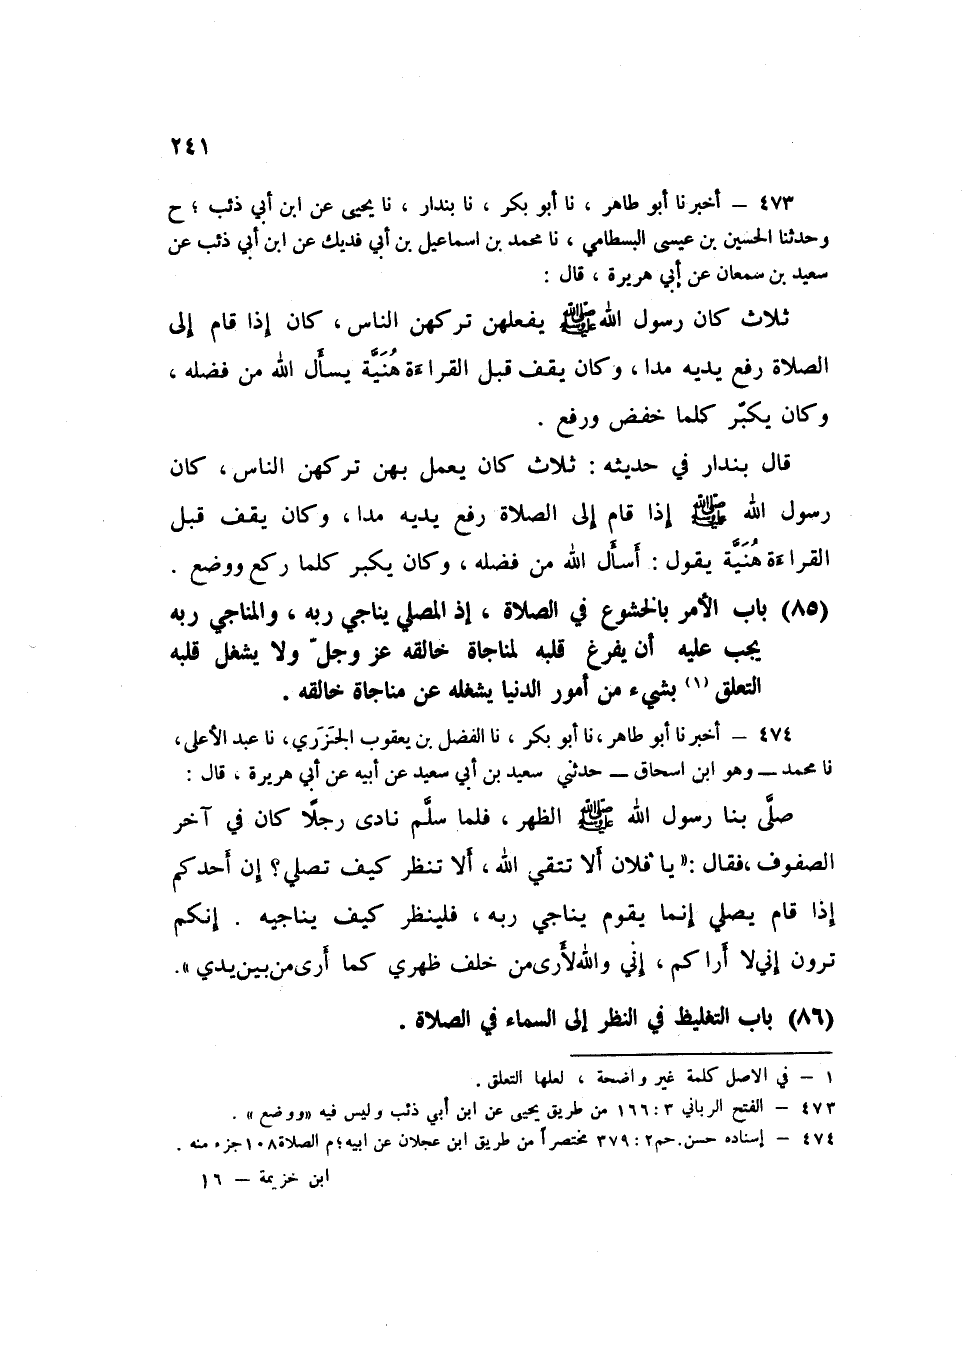 ٢٤١
٤٧٣ – أخبرنا أبو طاهر ، نا أبو بكر ، نا بندار ، نا يحيى عن ابن أبي ذئب ؛ ح
وحدثنا الحسين بن عيسى البسطامي ، نا محمد بن اسماعيل بن أبي فديك عن ابن أبي ذئب عن
سعيد بن سمعان عن أبي هريرة ، قال :
ثلاث كان رسول الله ﷺ يفعلهن تركهن الناس ، كان إذا قام إلى
الصلاة رفع يديه مدا ، وكان يقف قبل القراءة هُنَيَّة يسأل الله من فضله ،
وكان يكبّر كلما خفض ورفع .
قال بندار في حديثه : ثلاث كان يعمل بهن تركهن الناس ، كان
رسول الله ﷺ إذا قام إلى الصلاة رفع يديه مدا ، وكان يقف قبل
القراءة هُنَيَّة يقول : أسأل الله من فضله ، وكان يكبر كلما ركع ووضع .
(٨٥) باب الأمر بالخشوع في الصلاة ، إذ المصلي يناجي ربه ، والمناجي ربه
يجب عليه أن يفرغ قلبه لمناجاة خالقه عز وجلّ ولا يشغل قلبه
التعلق (١) بشيء من أمور الدنيا يشغله عن مناجاة خالقه .
٤٧٤ – أخبرنا أبو طاهر ، نا أبو بكر ، نا الفضل بن يعقوب الجَزَري ، نا عبد الأعلى ،
نا محمد – وهو ابن اسحاق – حدثني سعيد بن أبي سعيد عن أبيه عن أبي هريرة ، قال :
صلَّى بنا رسول الله ﷺ الظهر ، فلما سلَّم نادى رجلًا كان في آخر
الصفوف ، فقال : « يا فلان ألا تتقي الله ، ألا تنظر كيف تصلي ؟ إن أحدكم
إذا قام يصلي إنما يقوم يناجي ربه ، فلينظر كيف يناجيه . إنكم
ترون إني لا أراكم ، إنّي والله لأرى من خلف ظهري كما أرى من بين يدي » .
(٨٦) باب التغليظ في النظر إلى السماء في الصلاة .
١ – في الاصل كلمة غير واضحة ، لعلها التعلق .
٤٧٣ – الفتح الرباني ٣ : ١٦٦ من طريق يحيى عن ابن أبي ذئب وليس فيه «ووضع» .
٤٧٤ – إسناده حسن . حم ٢ : ٣٧٩ مختصراً من طريق ابن عجلان عن ابيه ؛ م الصلاة ١٠٨ جزء منه .
ابن خزيمة – ١٦